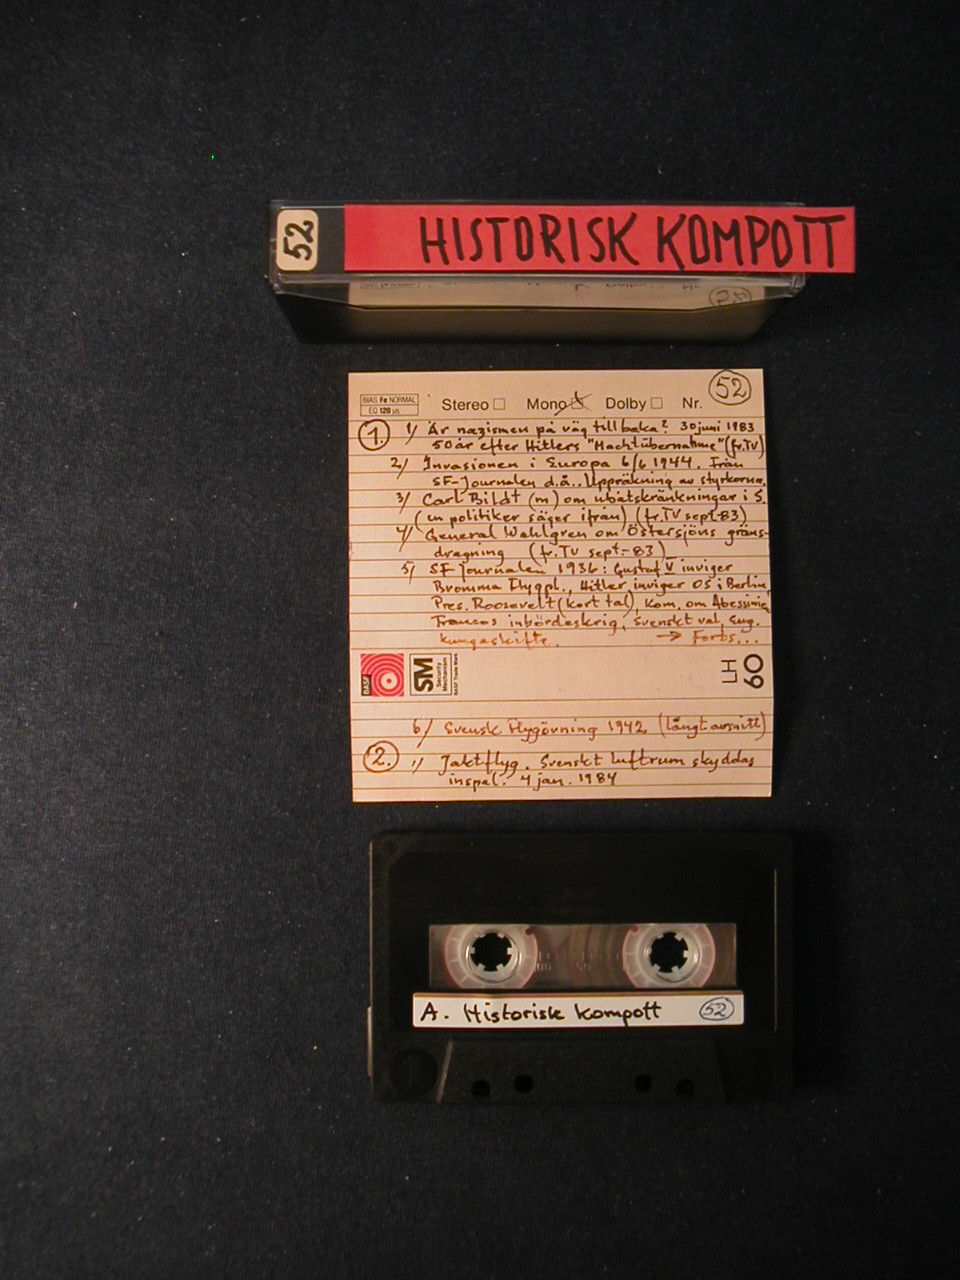 52 HISTORISK KOMPOTT
52
BIAS Fe NORMAL
EQ 120 µs
Stereo Mono Dolby Nr.
1. 1/ Är nazismen på väg tillbaka? 30 juni 1983
50 år efter Hitlers "Machtübernahme" (fr. TV)
2/ Invasionen i Europa 6/6 1944. Från
SF-Journalen d.å.. Uppräkning av styrkorna.
3/ Carl Bildt (m) om ubåtskränkningar i S.
(en politiker säger ifrån) (fr. TV sept-83)
4/ General Wahlgren om Östersjöns gräns-
dragning (fr. TV sept-83)
5/ SF Journalen 1936: Gustaf V inviger
Bromma Flygpl., Hitler inviger OS i Berlin,
Pres. Roosevelt (kort tal), Kom. om Abessinien
Francos inbördeskrig, Svenskt val, Eng.
kungaskifte. → Forts...
BASF
SM
Security
Mechanism
BASF Trade Mark
LH
60
6/ Svensk Flygövning 1942 (långt avsnitt)
2. 1/ Jaktflyg. Svenskt luftrum skyddas
inspel. 4 jan. 1984
A. Historisk kompott 52